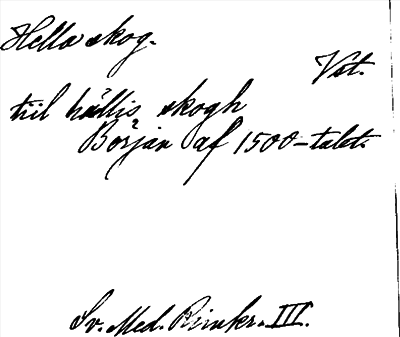 Hella skog.
Vst.
till hällis skogh
Början af 1500-talet.
Sv. Med. Rimkr. III.